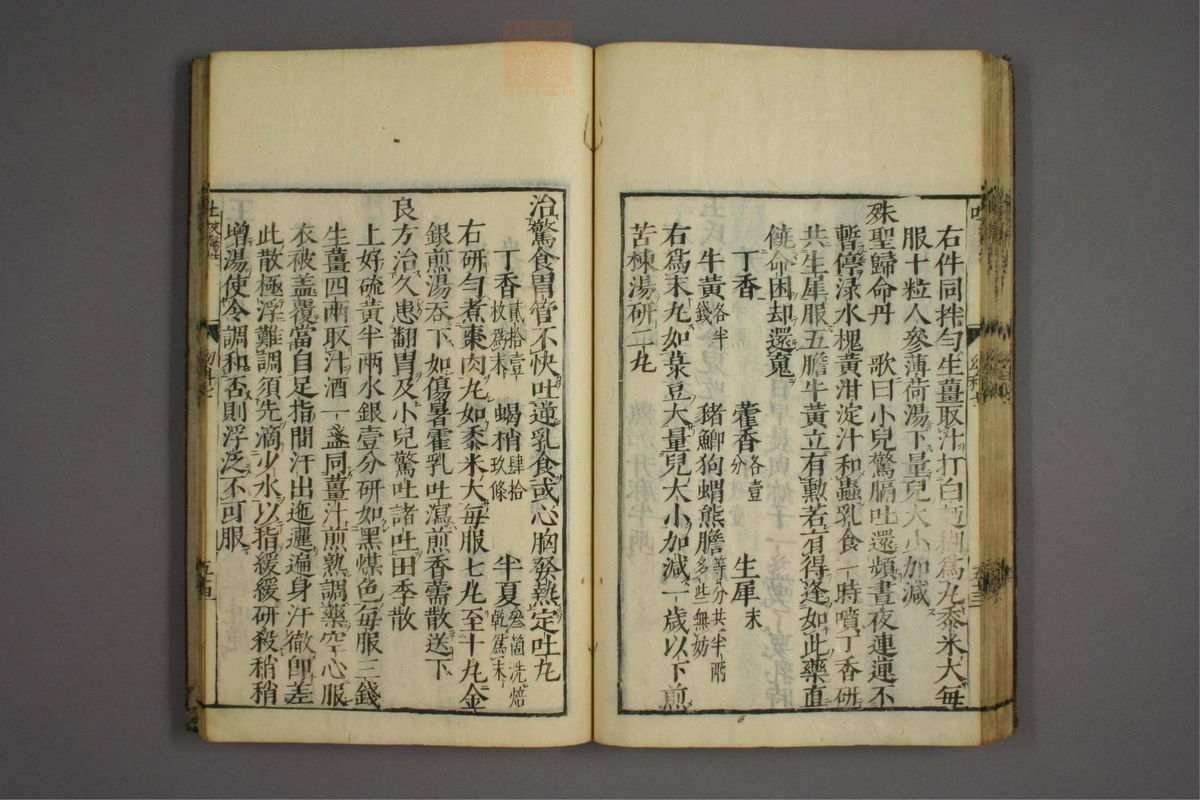 右件同拌勻生薑取汁打白麪糊爲丸黍米大每
服十粒人參薄荷湯下量兒大小加減
殊聖歸命丹　歌曰小兒驚膈吐還頻晝夜連連不
暫停渌水槐黃泔淀汁和蟲乳食一時噴丁香研
共生犀服五膽牛黃立有勲若有得逢如此藥直
饒命困却還䰟
丁香　藿香各壹分　生犀末
牛黃各半錢　豬鯽狗蝟熊膽等分共半兩多些無妨
右爲末丸如菉豆大量兒大小加減一歲以下煎
苦楝湯研二丸
治驚食胃管不快吐逆乳食或心胸發熱定吐丸
丁香貳拾壹枚爲末　蝎梢肆拾玖條　半夏叄箇洗焙乾爲末
右研勻煮棗肉丸如黍米大每服七丸至十丸金
銀煎湯吞下如傷暑霍乳吐瀉煎香薷散送下
良方治久患翻胃及小兒驚吐諸吐田季散
上好硫黃半兩水銀壹分研如黑煤色每服三錢
生薑四兩取汁酒一盞同薑汁煎熟調藥空心服
衣被盖覆當自足指間汗出迤邐遍身汗徹卽差
此散極浮難調須先滴少水以指緩緩研殺稍稍
增湯使令調和否則浮泛不可服